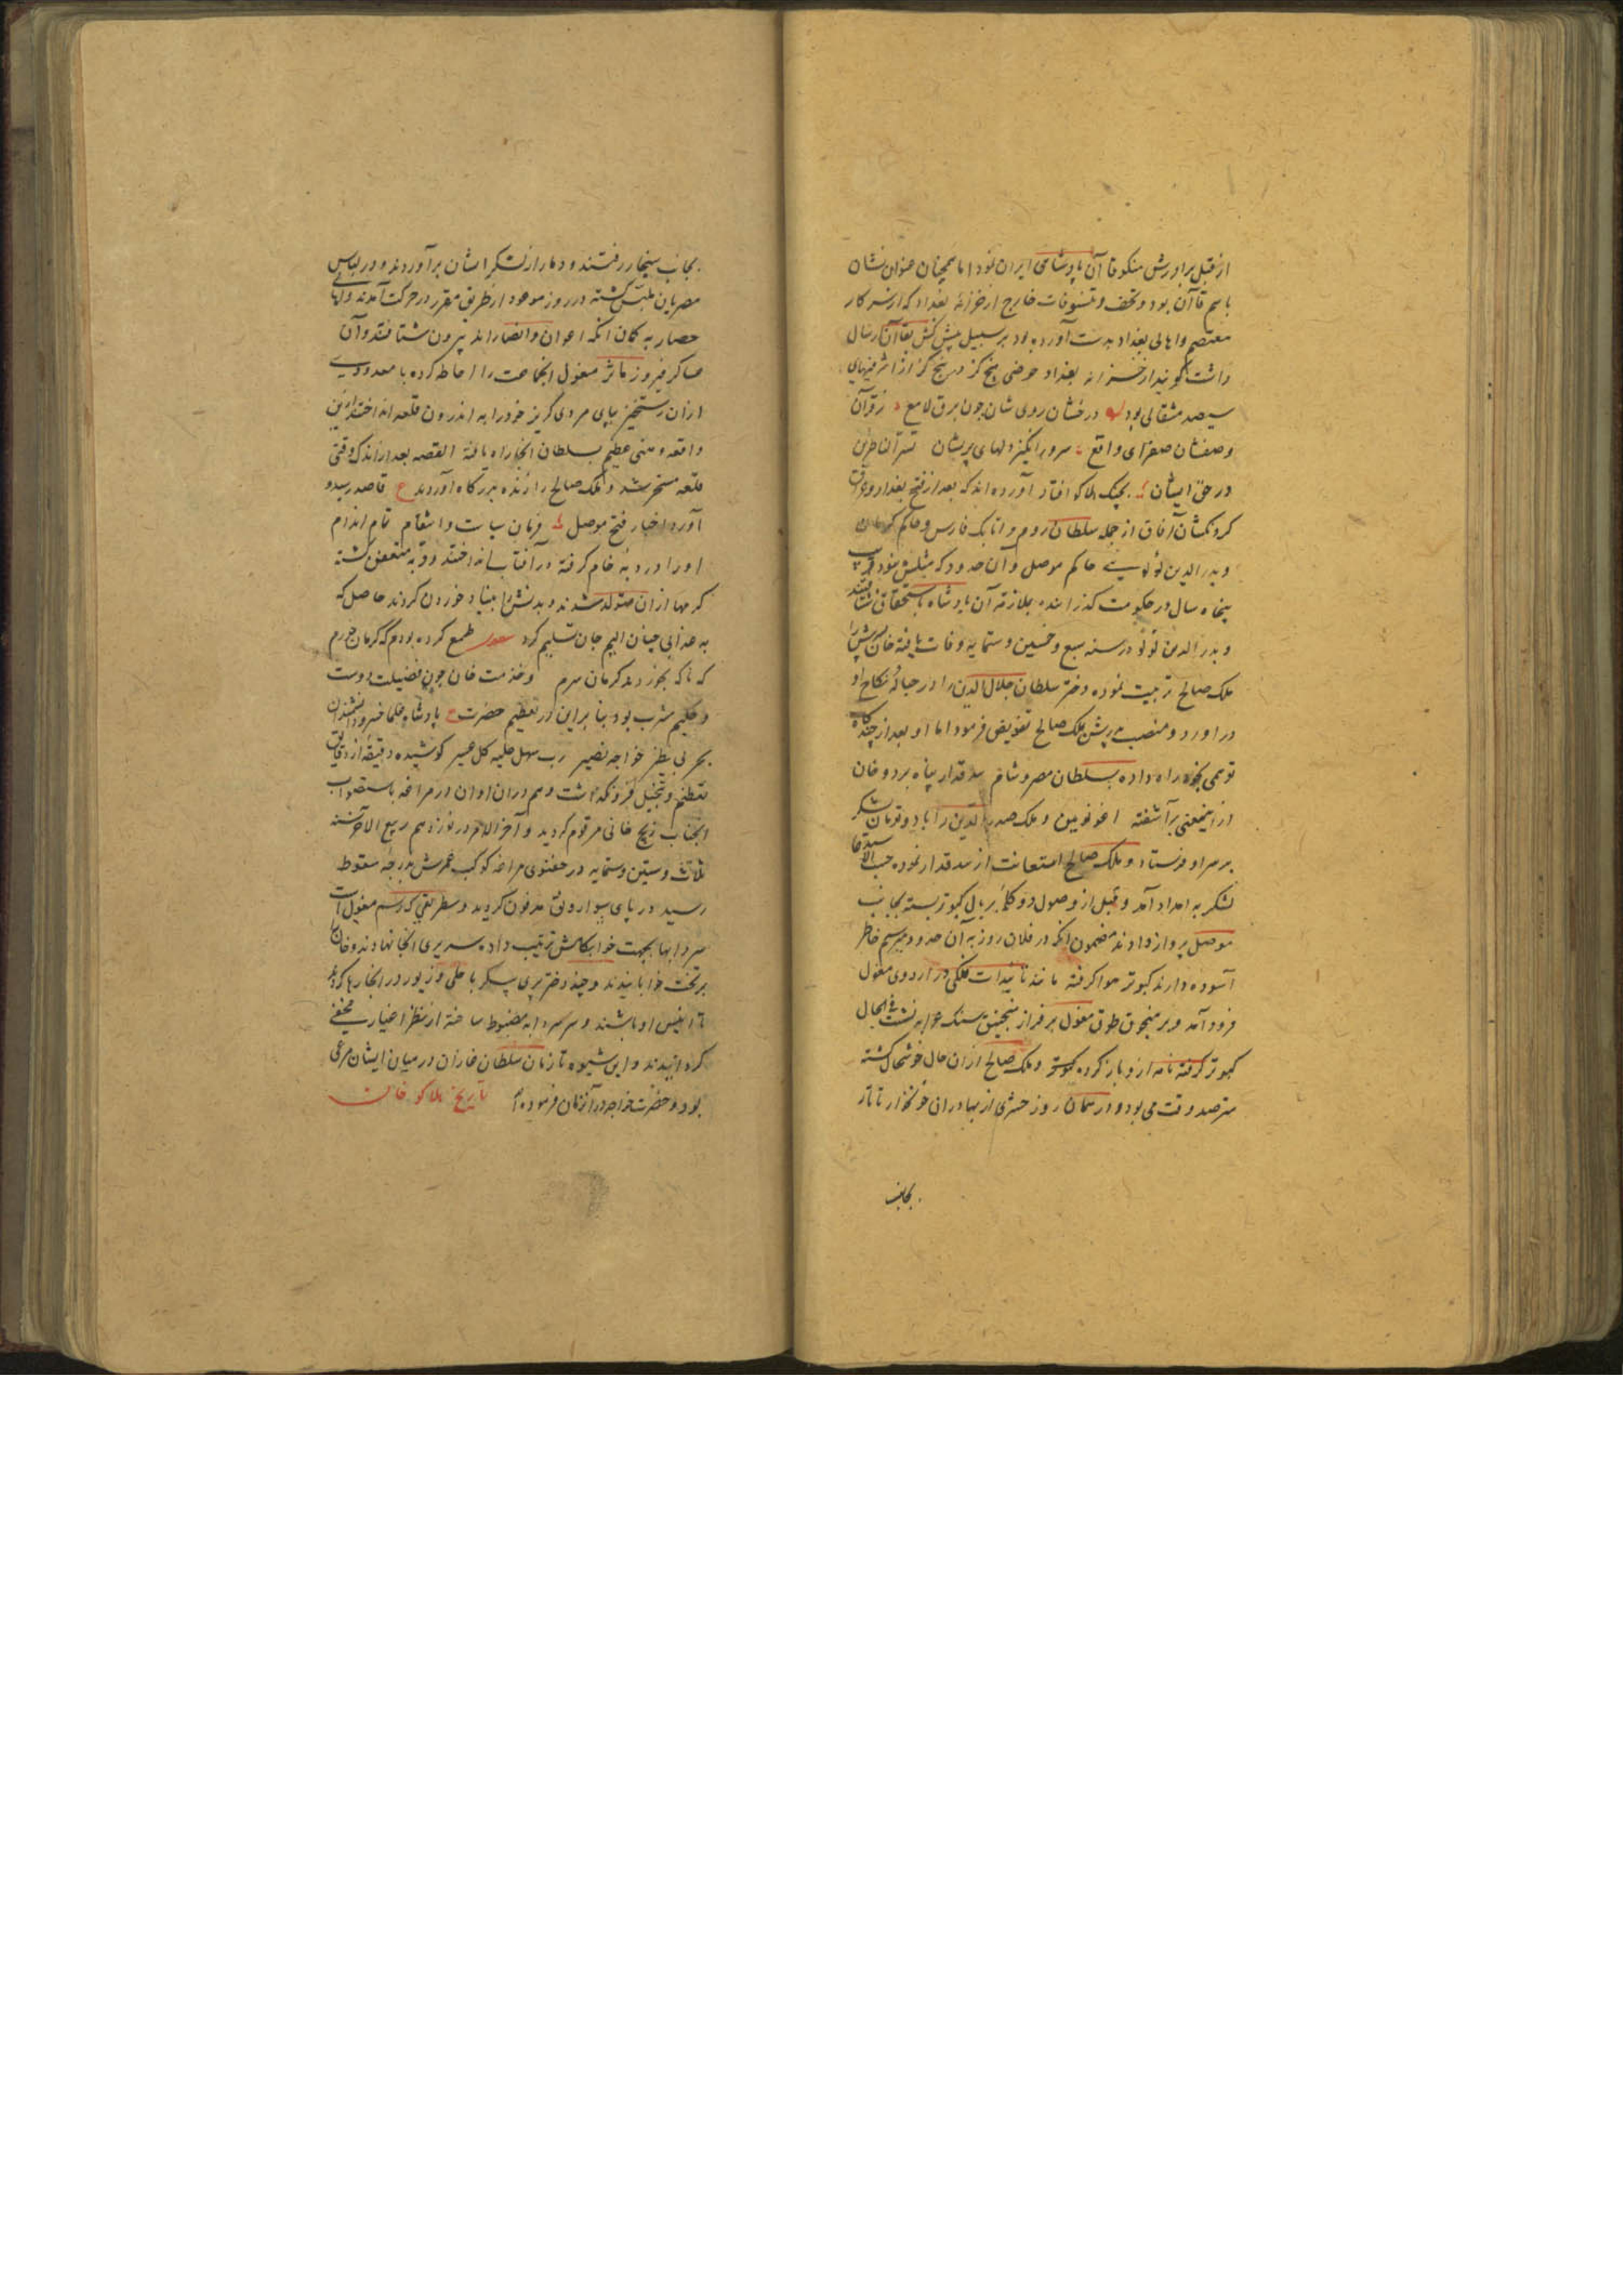 از قبل برادرش منکوقاآن پادشاهی ایران نمود اما همچنان عنوان نشان
باسم قاآن بود و تحف و تنسوقات خارج از خزانهٔ بغداد که از سرکار
معتصم و اهالی بغداد بدست آورده بود بر سبیل پیش کش بقاآن ارسال
داشت گویند از خزانه بغداد حوضی پنج گز در پنج گز از اشرفیهای
سیصد مثقالی بود درخشان روی شان چون برق لامع زقرآن
وصفشان صفرای واقع سرور انگیز دلهای پریشان تسر الناظرین
در حق ایشان بچنگ هلاکو افتاد آورده اند که بعد از فتح بغداد و عراق
گردنکشان آفاق از جمله سلطان روم و اتابک فارس و حاکم کرمان
و بدرالدین لولو حاکم موصل و آن حدود که مثلش نبود قریب
پنجاه سال در حکومت گذرانده بملازمت آن پادشاه باستحقاق شتافتند
و بدرالدین لولو در سنه سبع و خمسین و ستمایه وفات یافته خان پسرش را
ملک صالح تربیت نموده دختر سلطان جلال الدین را در حبالهٔ نکاح او
در آورد و منصب پدرش بملک صالح تفویض فرمود اما او بعد از چندگاه
توهمی بخود راه داده بسلطان مصر و شام بندقدار پناه برد و خان
ازینمعنی برآشفته نویین و ملک صدرالدین را با دو تومان لشکر
بر سر او فرستاد و ملک صالح استعانت از بندقدار نموده حسب الاستدعا
لشکر به امداد آمد و قبل از وصول دو کلمه بر بال کبوتر بسته بجانب
موصل پرواز دادند مضمون آنکه در فلان روز به آن حدود میرسیم خاطر
آسوده دارند کبوتر هوا گرفته مانند تائیدات فلکی در اردوی مغول
فرود آمد و بر منجوق طوق مغول بر فراز منجنیق سنک نشست فی الحال
کبوتر گرفته نامه ازو باز کرده و ملک صالح از آن حال خوشحال گشته
مترصد وقت می بود و در همان روز حشری از بهادران خونخوار تاتار
بجانب
بجانب سنجار رفتند و دمار از لشکر ایشان برآوردند و در لباس
مصریان ملبس گشته در روز موعود از طریق مقرر در حرکت آمدند و اهل
حصار به گمان آنکه اعوان و انصار اند بیرون شتافتند و آن
عساکر فیروز مآثر مغول آنجماعت را احاطه کرده با معدودی
از آن رستخیز بپای مردی گریز خود را به اندرون قلعه انداختند ازین
واقعه وهنی عظیم بسلطان آنجا راه یافته القصه بعد از اندک وقتی
قلعه مسخر شد و ملک صالح را زنده بدرگاه آوردند ع قاصد رسید و
آورد اخبار فتح موصل فرمان سیاست و انتقام تمام اندام
او را در دنبهٔ خام گرفته در آفتاب انداختند و دنبه متعفن گشته
کرمها از آن متولد شدند و بدنش را بنیاد خوردن کردند حاصل که
به عذابی چنان الیم جان تسلیم کرد شعر طمع کرده بودم که کرمان خورم
که ناگه بخوردند کرمان سرم و حضرت خان چون فضیلت دوست
و حکیم مشرب بود بنا برین در تعظیم حضرت ع پادشاه علما خسرو دانشمندان
بحر بی نظیر خواجه نصیر رب سهل علیه کل عسیر کوشیده دقیقهٔ از دقایق
تعظیم و تبجیل فرو نگذاشت و هم در آن اوان در مراغه باستصواب
آنجناب زیج خانی مرقوم گردید و آخر الامر در نوزدهم ربیع الآخر سنه
ثلاث و ستین و ستمایه در جغتوی مراغه کوکب عمرش بدرجهٔ سقوط
رسید در پای مدفون گردید و بطریقی که رسم مغول است
سردابها بجهت خوابگاهش ترتیب داده سریری آنجا نهادند و خان را
بر تخت خوابانیدند و چند دختر پری پیکر با حلی و زیور در آنجا رها کردند
تا انیس او باشند و سر سردابه مضبوط ساخته از نظر اغیار مخفی
گردانیدند و این شیوه تا زمان سلطان غازان در میان ایشان مرعی
بود و حضرت خواجه در آنزمان فرموده تاریخ هلاکو خان